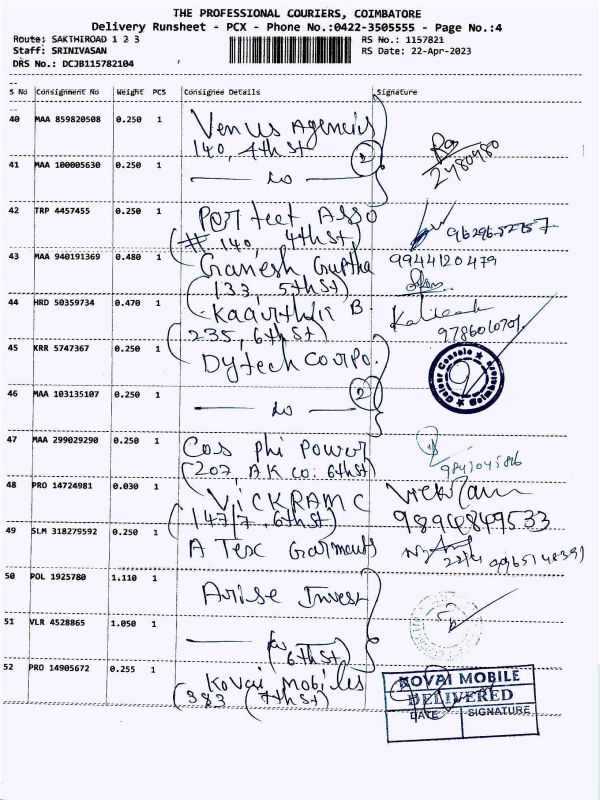 THE PROFESSIONAL COURIERS, COIMBATORE
Delivery Runsheet - PCX - Phone No.:0422-3505555 - Page No.:4
Route: SAKTHIROAD 1 2 3
RS No.: 1157821
Staff: SRINIVASAN
RS Date: 22-Apr-2023
DRS No.: DCJB115782104
S No Consignment No Weight PCS Consignee Details Signature
40 MAA 859820508 0.250 1 Venus Agencies
140, 4th St
2
2480480
41 MAA 100005630 0.250 1 — do —
42 TRP 4457455 0.250 1 Perfect Asso
(# 140, 4th St)
43 MAA 940191369 0.480 1 Ganesh Guptha 9944120479
(133, 5th St)
44 HRD 50359734 0.470 1 Kaarthii B
(235, 6th St)
9786010701
45 KRR 5747367 0.250 1 Dytech Corpo.
46 MAA 103135107 0.250 1 — do —
2
47 MAA 299029290 0.250 1 Cos phi Power
(207, A K Co: 6th St)
48 PRO 14724981 0.030 1 VICKRAM C
(147/7, 6th St)
9894849533
49 SLM 318279592 0.250 1 A Tex Garments
22/4
50 POL 1925780 1.110 1 Arise Invest
51 VLR 4528865 1.050 1 — do —
(6th St)
52 PRO 14905672 0.255 1 Kovai Mobiles
(383 (7th St)
KOVAI MOBILE
DELIVERED
DATE SIGNATURE